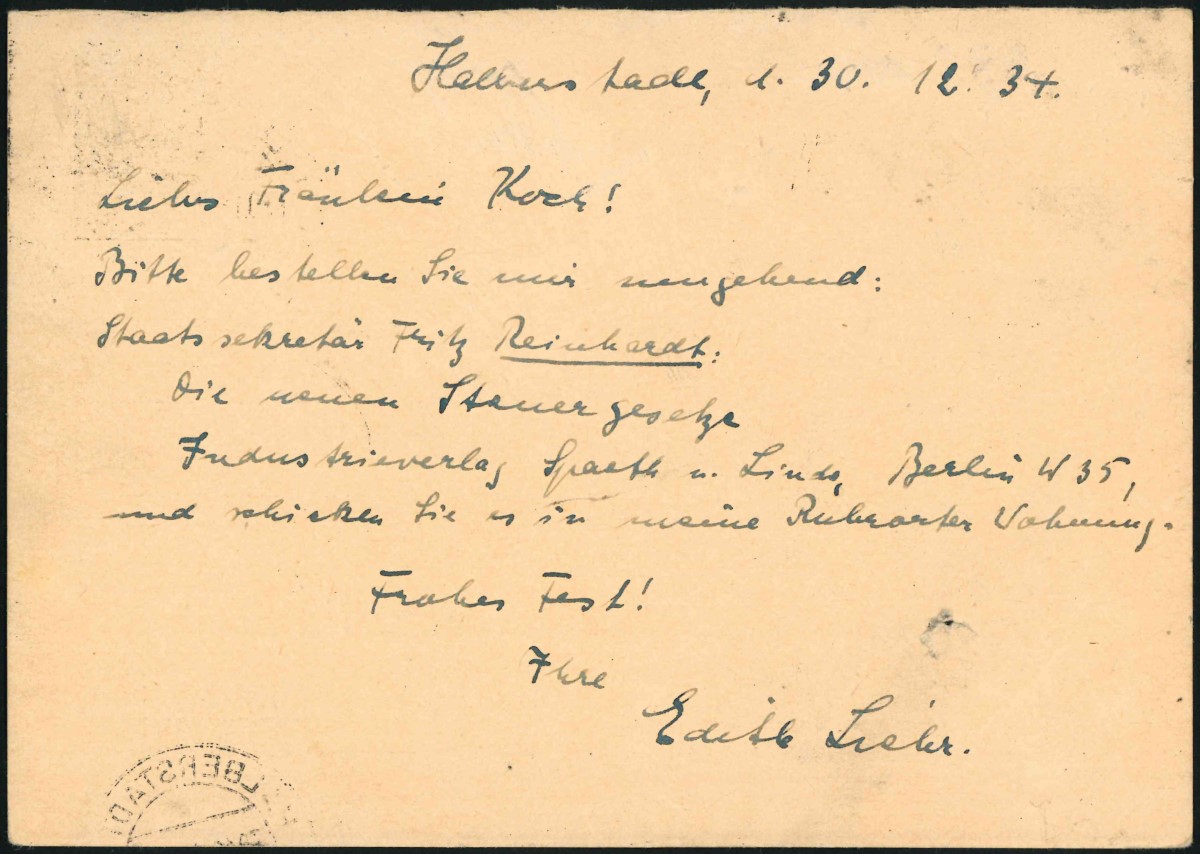 Halberstadt, d. 30. 12. 34.
Liebes Fräulein Koch!
Bitte bestellen Sie mir umgehend:
Staatssekretär Fritz Reinhardt:
Die neuen Steuergesetze
Industrieverlag Spaeth u. Linde, Berlin W 35,
und schicken Sie es in meine Ruhrorter Wohnung.
Frohes Fest!
Ihre
Edith Liehr.
LBERSTADT